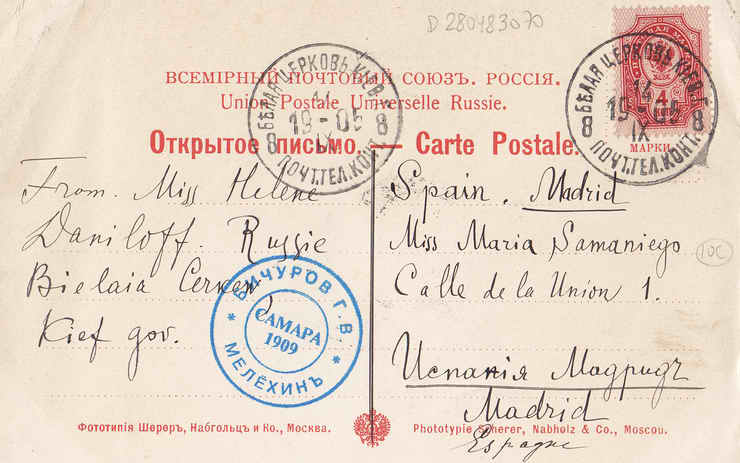 D 280483070
ВСЕМІРНЫЙ ПОЧТОВЫЙ СОЮЗЪ. РОССІЯ.
Union Postale Universelle Russie.
Открытое письмо. — Carte Postale.
БѢЛАЯ ЦЕРКОВЬ КІЕВ. Г.
14
19-05
IX
8 8
ПОЧТ.ТЕЛ.КОНТ.
БѢЛАЯ ЦЕРКОВЬ КІЕВ. Г.
14
19-05
IX
8 8
ПОЧТ.ТЕЛ.КОНТ.
4
МАРКИ
From. Miss Helene
Daniloff. Russie
Bielaia Cerkov
Kief gov.
БИЧУРОВ Г. В.
САМАРА
1909
* МЕЛЁХИНЪ *
Spain. Madrid
Miss Maria Samaniego
Calle de la Union 1.
10C
Испанія Мадридъ
Madrid
Espagne
Фототипія Шереръ, Набгольцъ и Ко., Москва.
Phototypie Scherer, Nabholz & Co., Moscou.